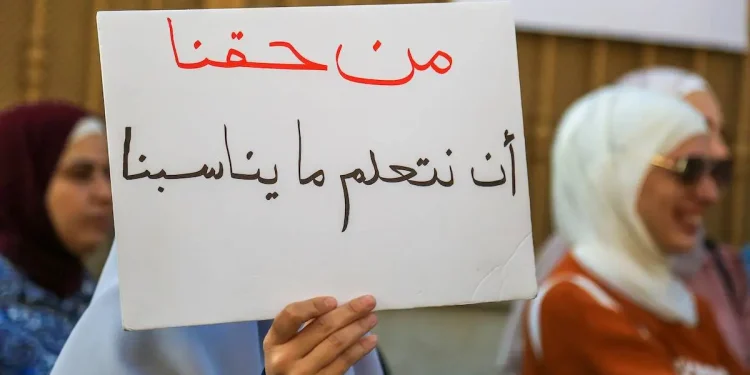 من حقنا
أن نتعلم ما يناسبنا